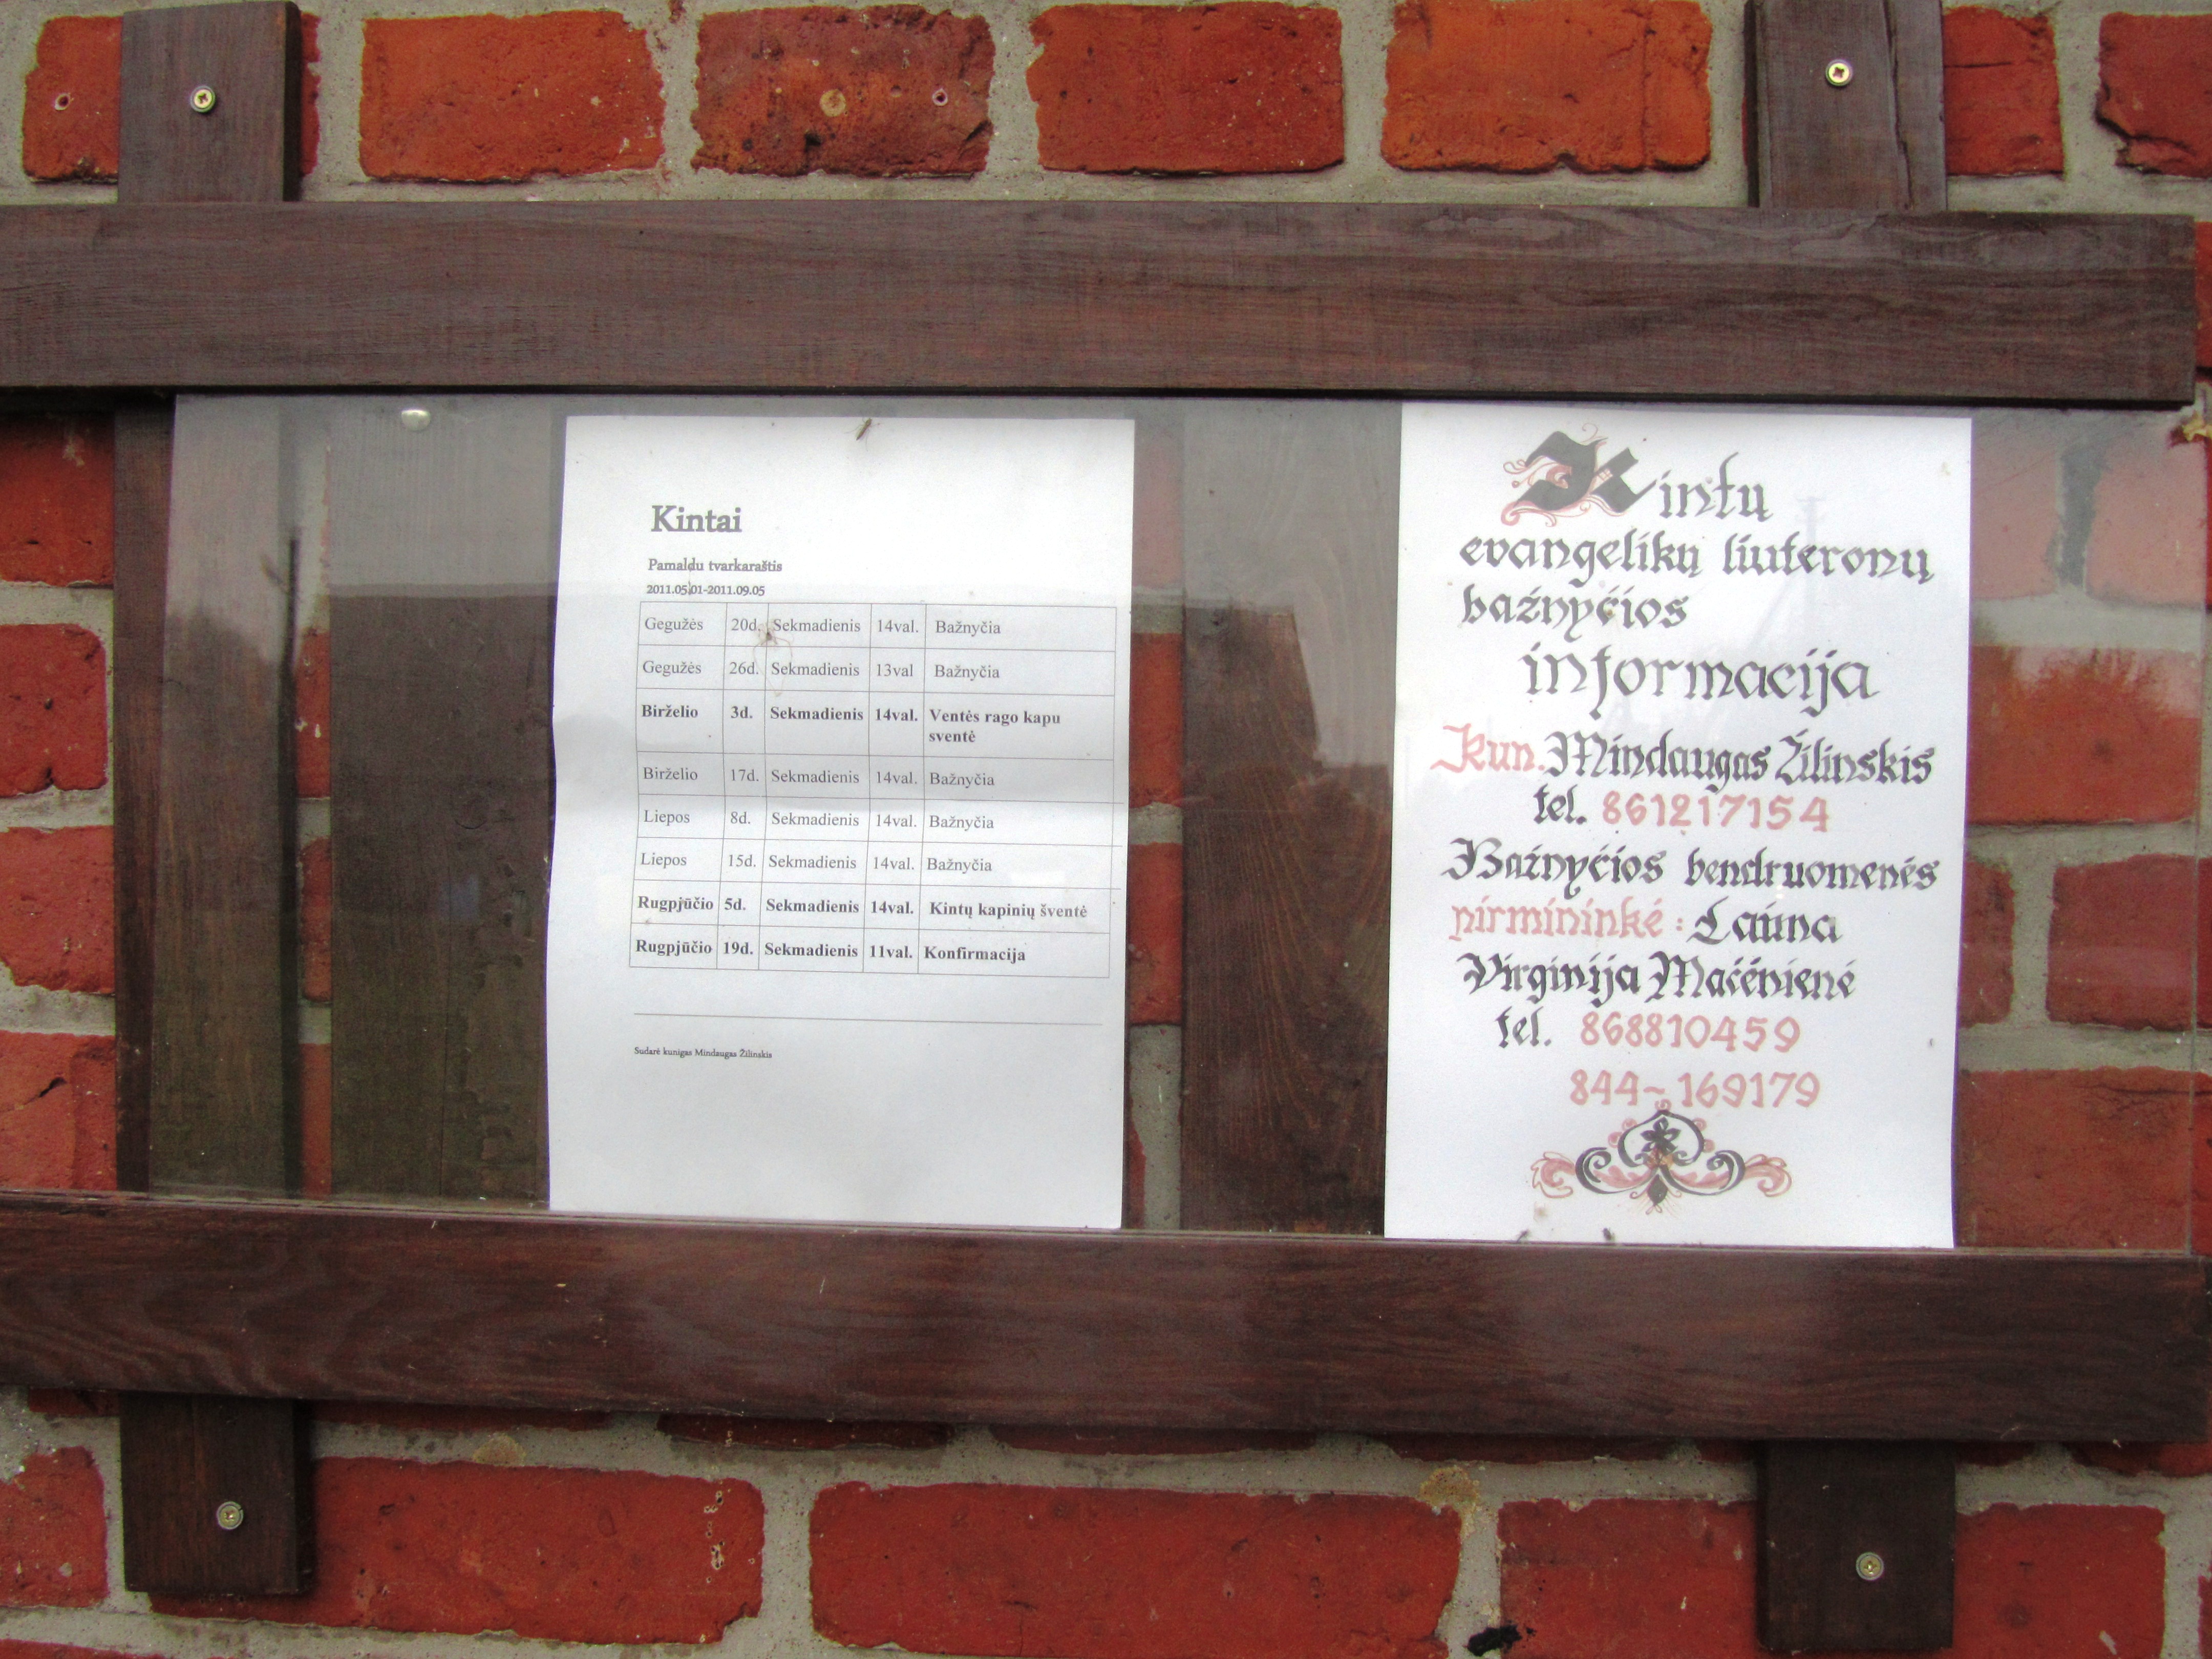 Kintai
Pamaldu tvarkaraštis
2011.05.01-2011.09.05
Gegužės 20d. Sekmadienis 14val. Bažnyčia
Gegužės 26d. Sekmadienis 13val Bažnyčia
Birželio 3d. Sekmadienis 14val. Ventės rago kapu
sventė
Birželio 17d. Sekmadienis 14val. Bažnyčia
Liepos 8d. Sekmadienis 14val. Bažnyčia
Liepos 15d. Sekmadienis 14val. Bažnyčia
Rugpjūčio 5d. Sekmadienis 14val. Kintų kapinių šventė
Rugpjūčio 19d. Sekmadienis 11val. Konfirmacija
Sudarė kunigas Mindaugas Žilinskis
Kintų
evangelikų liuteronų
bažnyčios
informacija
Kun. Mindaugas Žilinskis
tel. 861217154
Bažnyčios bendruomenės
pirmininkė: Laima
Virginija Mačėnienė
tel. 868810459
844~169179